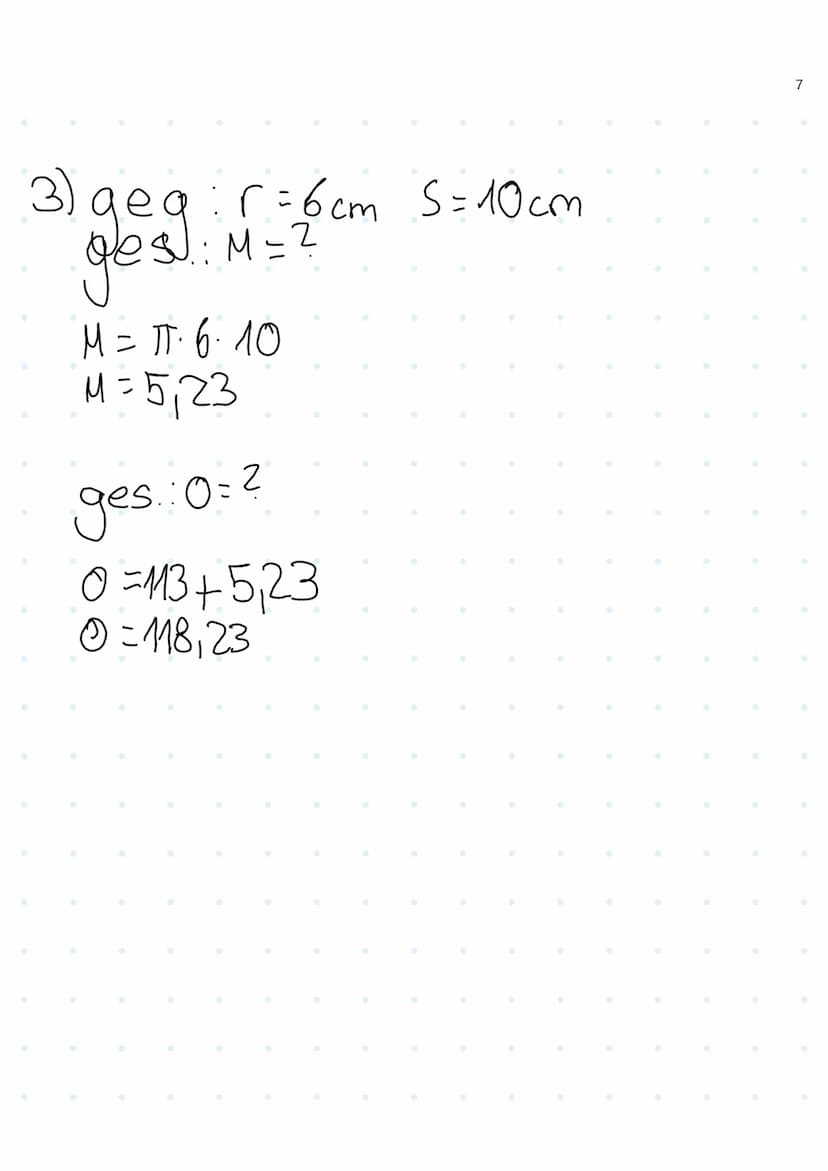 7
3) geg: r=6cm S=10cm
ges.: M=?
M=π·6·10
M=5,23
ges.: O=?
O=113+5,23
O=118,23